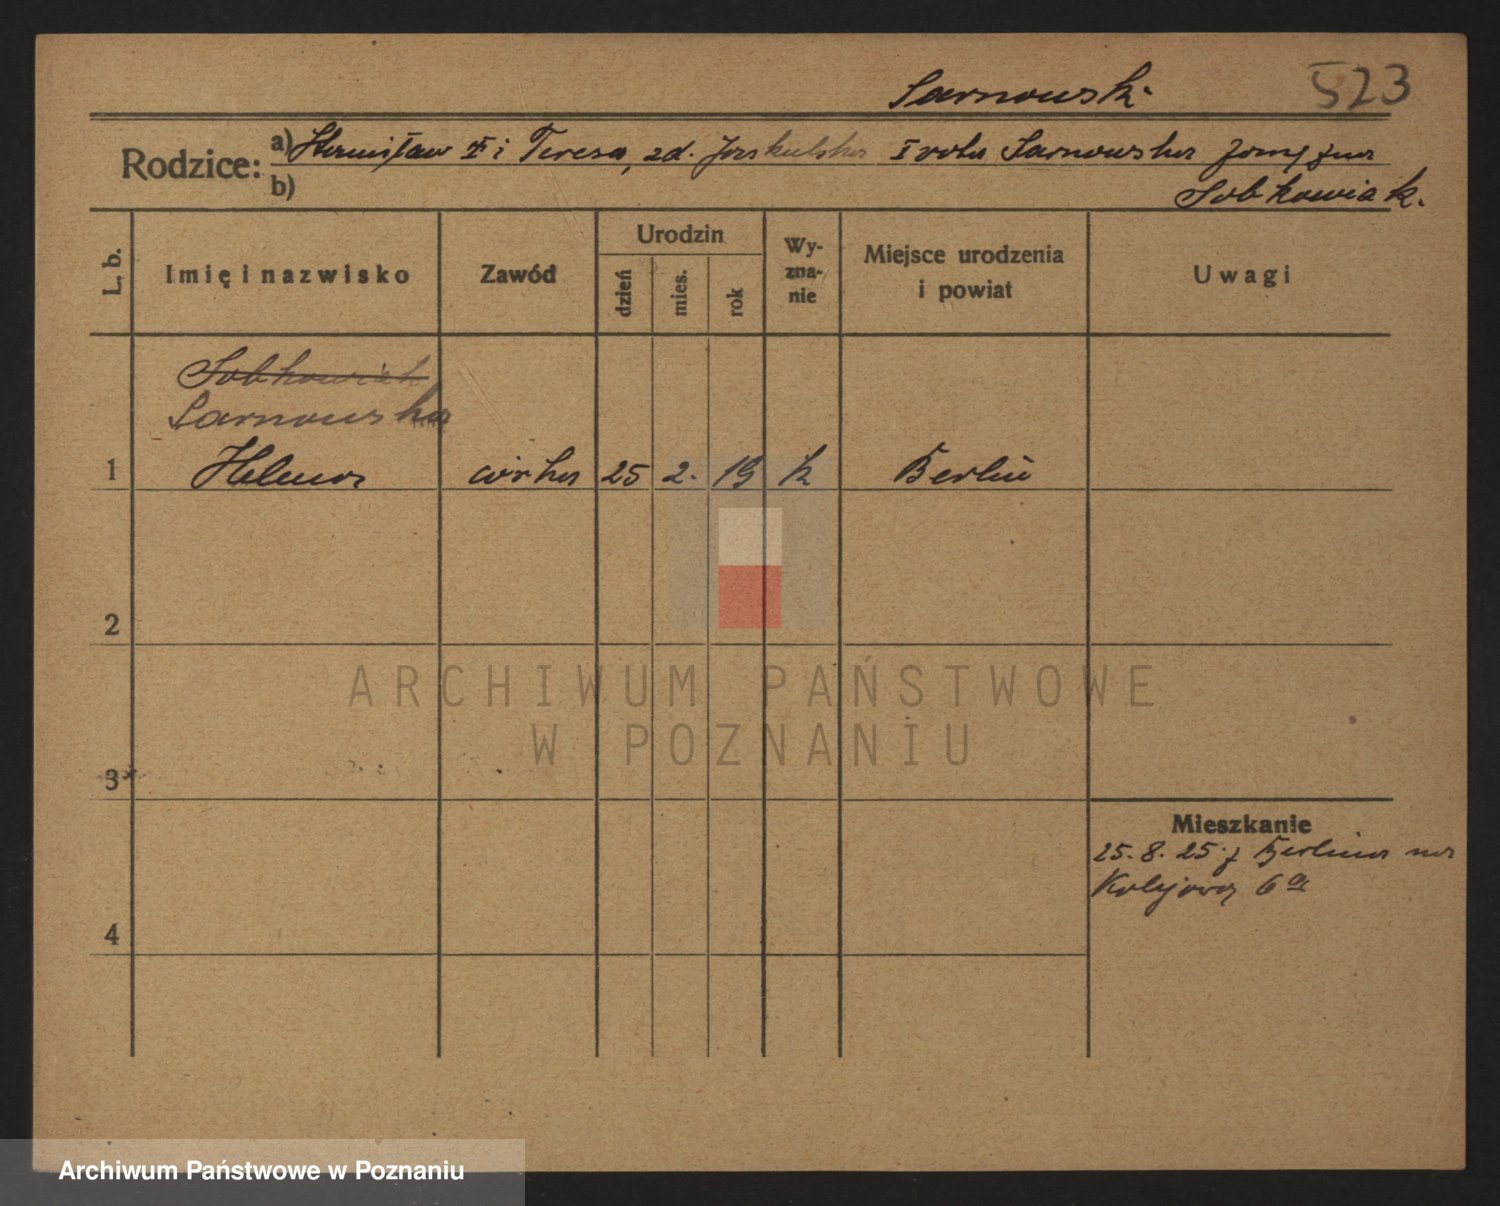 Sarnowski
523
Rodzice: a) Stanisław † i Teresa, zd. Jaskulska I voto Sarnowska zamężna
b) Sobkowiak.
L. b.
Imię i nazwisko
Zawód
Urodzin
dzień
mies.
rok
Wy-
zna-
nie
Miejsce urodzenia
i powiat
Uwagi
Sobkowiak
Sarnowska
1 Helena córka 25 2. 19 k Berlin
2
3
4
Mieszkanie
25.8.25 z Berlina na
Kolejową 6a
ARCHIWUM PAŃSTWOWE
W POZNANIU
Archiwum Państwowe w Poznaniu